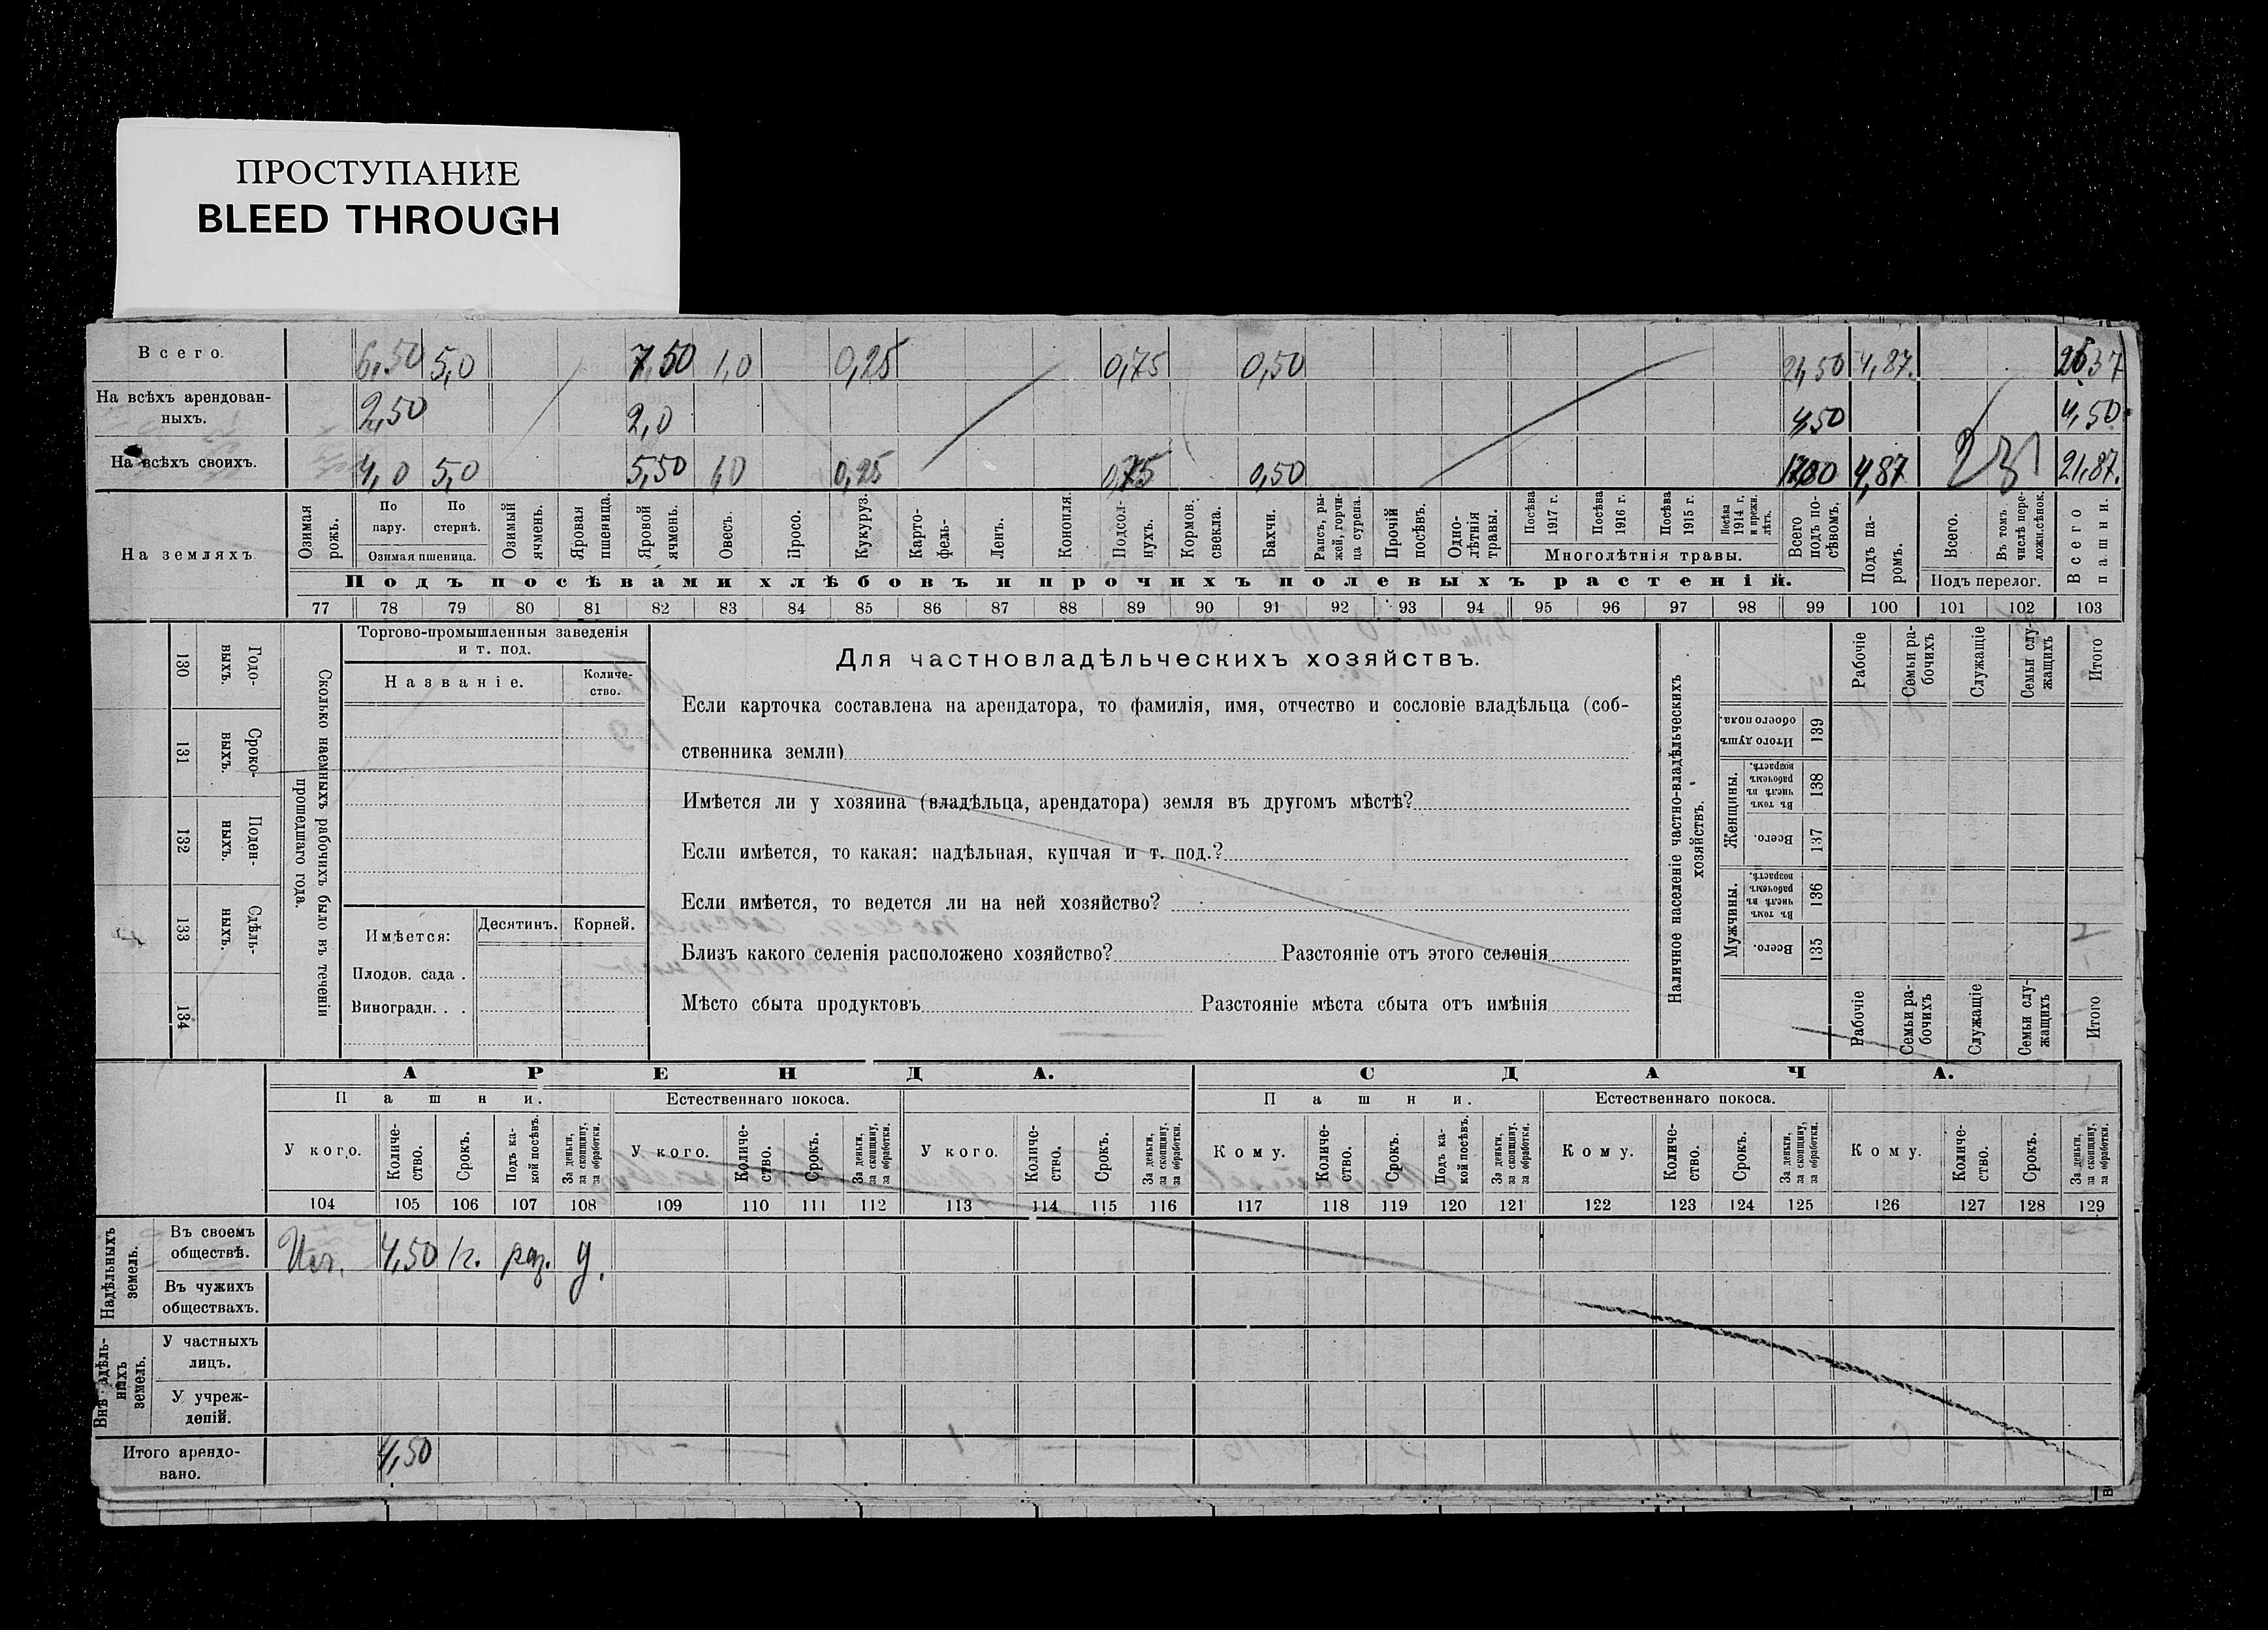 ПРОСТУПАНИЕ
BLEED THROUGH
Всего. 6,50 5,0 7,50 1,0 0,25 0,75 0,50 21,50 4,87. 26,37
На всѣхъ арендован-
ныхъ. 2,50 2,0 4,50 4,50
На всѣхъ своихъ. 4,0 5,0 5,50 1,0 0,25 0,75 0,50 17,00 4,87 21,87.
На земляхъ.
Озимая рожь.
По пару.
По стернѣ.
Озимая пшеница.
Озимый ячмень.
Яровая пшеница.
Яровой ячмень.
Овесъ.
Просо.
Кукуруз.
Карто-
фель-
Ленъ.
Конопля.
Подсол-
нухъ.
Кормов. свекла.
Бахчи.
Рапсъ, ры-
жей, горчи-
ца сурепа.
Прочій посѣвъ.
Одно-
лѣтнія травы.
Посѣва 1917 г.
Посѣва 1916 г.
Посѣва 1915 г.
Посѣва 1914 г. и прежн. лѣтъ.
Многолѣтнія травы.
Всего подъ по-
сѣвомъ.
Подъ па-
ромъ.
Всего.
Въ томъ числѣ пере-
ложн.сѣнок.
Подъ перелог.
Всего пашни.
Подъ посѣвами хлѣбовъ и прочихъ полевыхъ растеній.
77 78 79 80 81 82 83 84 85 86 87 88 89 90 91 92 93 94 95 96 97 98 99 100 101 102 103
130 Годо-
выхъ.
131 Сроко-
выхъ.
132 Поден-
ныхъ.
133 Сдѣль-
ныхъ.
134
Сколько наемныхъ рабочихъ было въ теченіи
прошедшаго года.
Торгово-промышленныя заведенія
и т. под.
Названіе. Количе-
ство.
Имѣется: Десятинъ. Корней.
Плодов. сада .
Виноградн. . .
Для частновладѣльческихъ хозяйствъ.
Если карточка составлена на арендатора, то фамилія, имя, отчество и сословіе владѣльца (соб-
ственника земли)
Имѣется ли у хозяина (владѣльца, арендатора) земля въ другомъ мѣстѣ?
Если имѣется, то какая: надѣльная, купчая и т. под.?
Если имѣется, то ведется ли на ней хозяйство?
Близъ какого селенія расположено хозяйство? Разстояніе отъ этого селенія
Мѣсто сбыта продуктовъ Разстояніе мѣста сбыта отъ имѣнія
Наличное населеніе частно-владѣльческихъ
хозяйствъ.
Рабочіе Семьи ра-
бочихъ Служащіе Семьи слу-
жащихъ Итого
Итого душъ обоего пола. 139
Женщины.
Въ томъ числѣ въ рабочемъ возрастѣ. 138
Всего. 137
Мужчины.
Въ томъ числѣ въ рабочемъ возрастѣ. 136
Всего. 135
Рабочіе Семьи ра-
бочихъ Служащіе Семьи слу-
жащихъ Итого
АРЕНДА. СДАЧА.
Пашни. Естественнаго покоса. Пашни. Естественнаго покоса.
У кого. Количе-
ство. Срокъ. Подъ ка-
кой посѣвъ. За деньги, за скопщину, за обработки.
У кого. Количе-
ство. Срокъ. За деньги, за скопщину, за обработки.
У кого. Количе-
ство. Срокъ. За деньги, за скопщину, за обработки.
Кому. Количе-
ство. Срокъ. Подъ ка-
кой посѣвъ. За деньги, за скопщину, за обработки.
Кому. Количе-
ство. Срокъ. За деньги, за скопщину, за обработки.
Кому. Количе-
ство. Срокъ. За деньги, за скопщину, за обработки.
104 105 106 107 108 109 110 111 112 113 114 115 116 117 118 119 120 121 122 123 124 125 126 127 128 129
Надѣльныхъ
земель.
Въ своемъ
обществѣ. 4,50 1г. раз. д.
Въ чужихъ
обществахъ.
земель.
У частныхъ
лицъ.
У учреж-
деній.
Итого арендо-
вано. 4,50